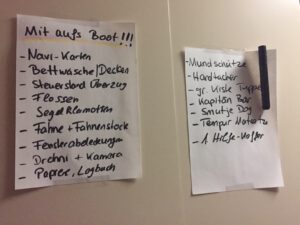 Mit aufs Boot!!!
- Navi-Karten
- Bettwäsche/Decken
- Steuerstand Überzug
- Flossen
- Segelklamotten
- Fahne + Fahnenstock
- Fenderabdeckungen
- Drohni + Kamera
- Papiere, Logbuch
- Mundschütze
- Handtücher
- gr. Kiste
- Kapitän Bär
- Smutje Dog
- Tempur
- 1. Hilfe-Koffer